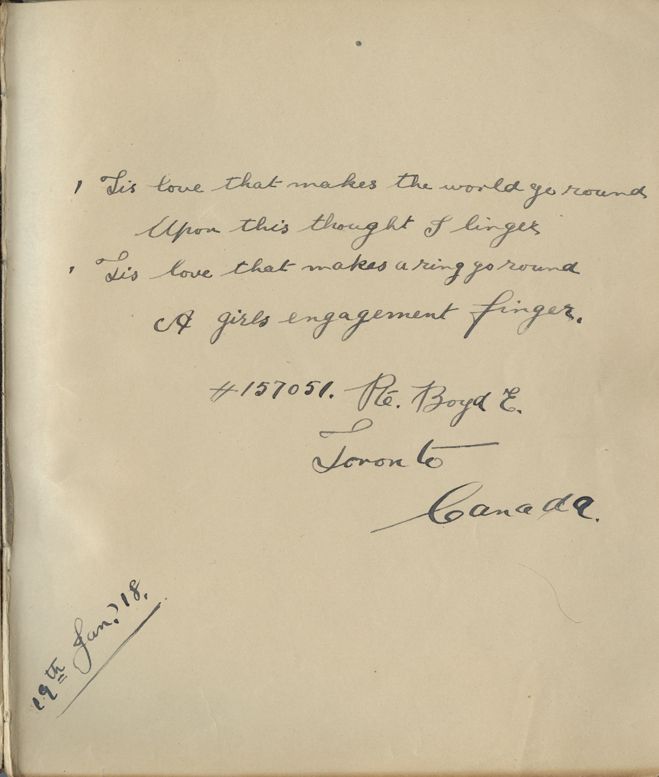 ' Tis love that makes the world go round
Upon this thought I linger
' Tis love that makes a ring go round
A girls engagement finger.
#157051. Pte. Boyd E.
Toronto
Canada.
19th Jan. '18.